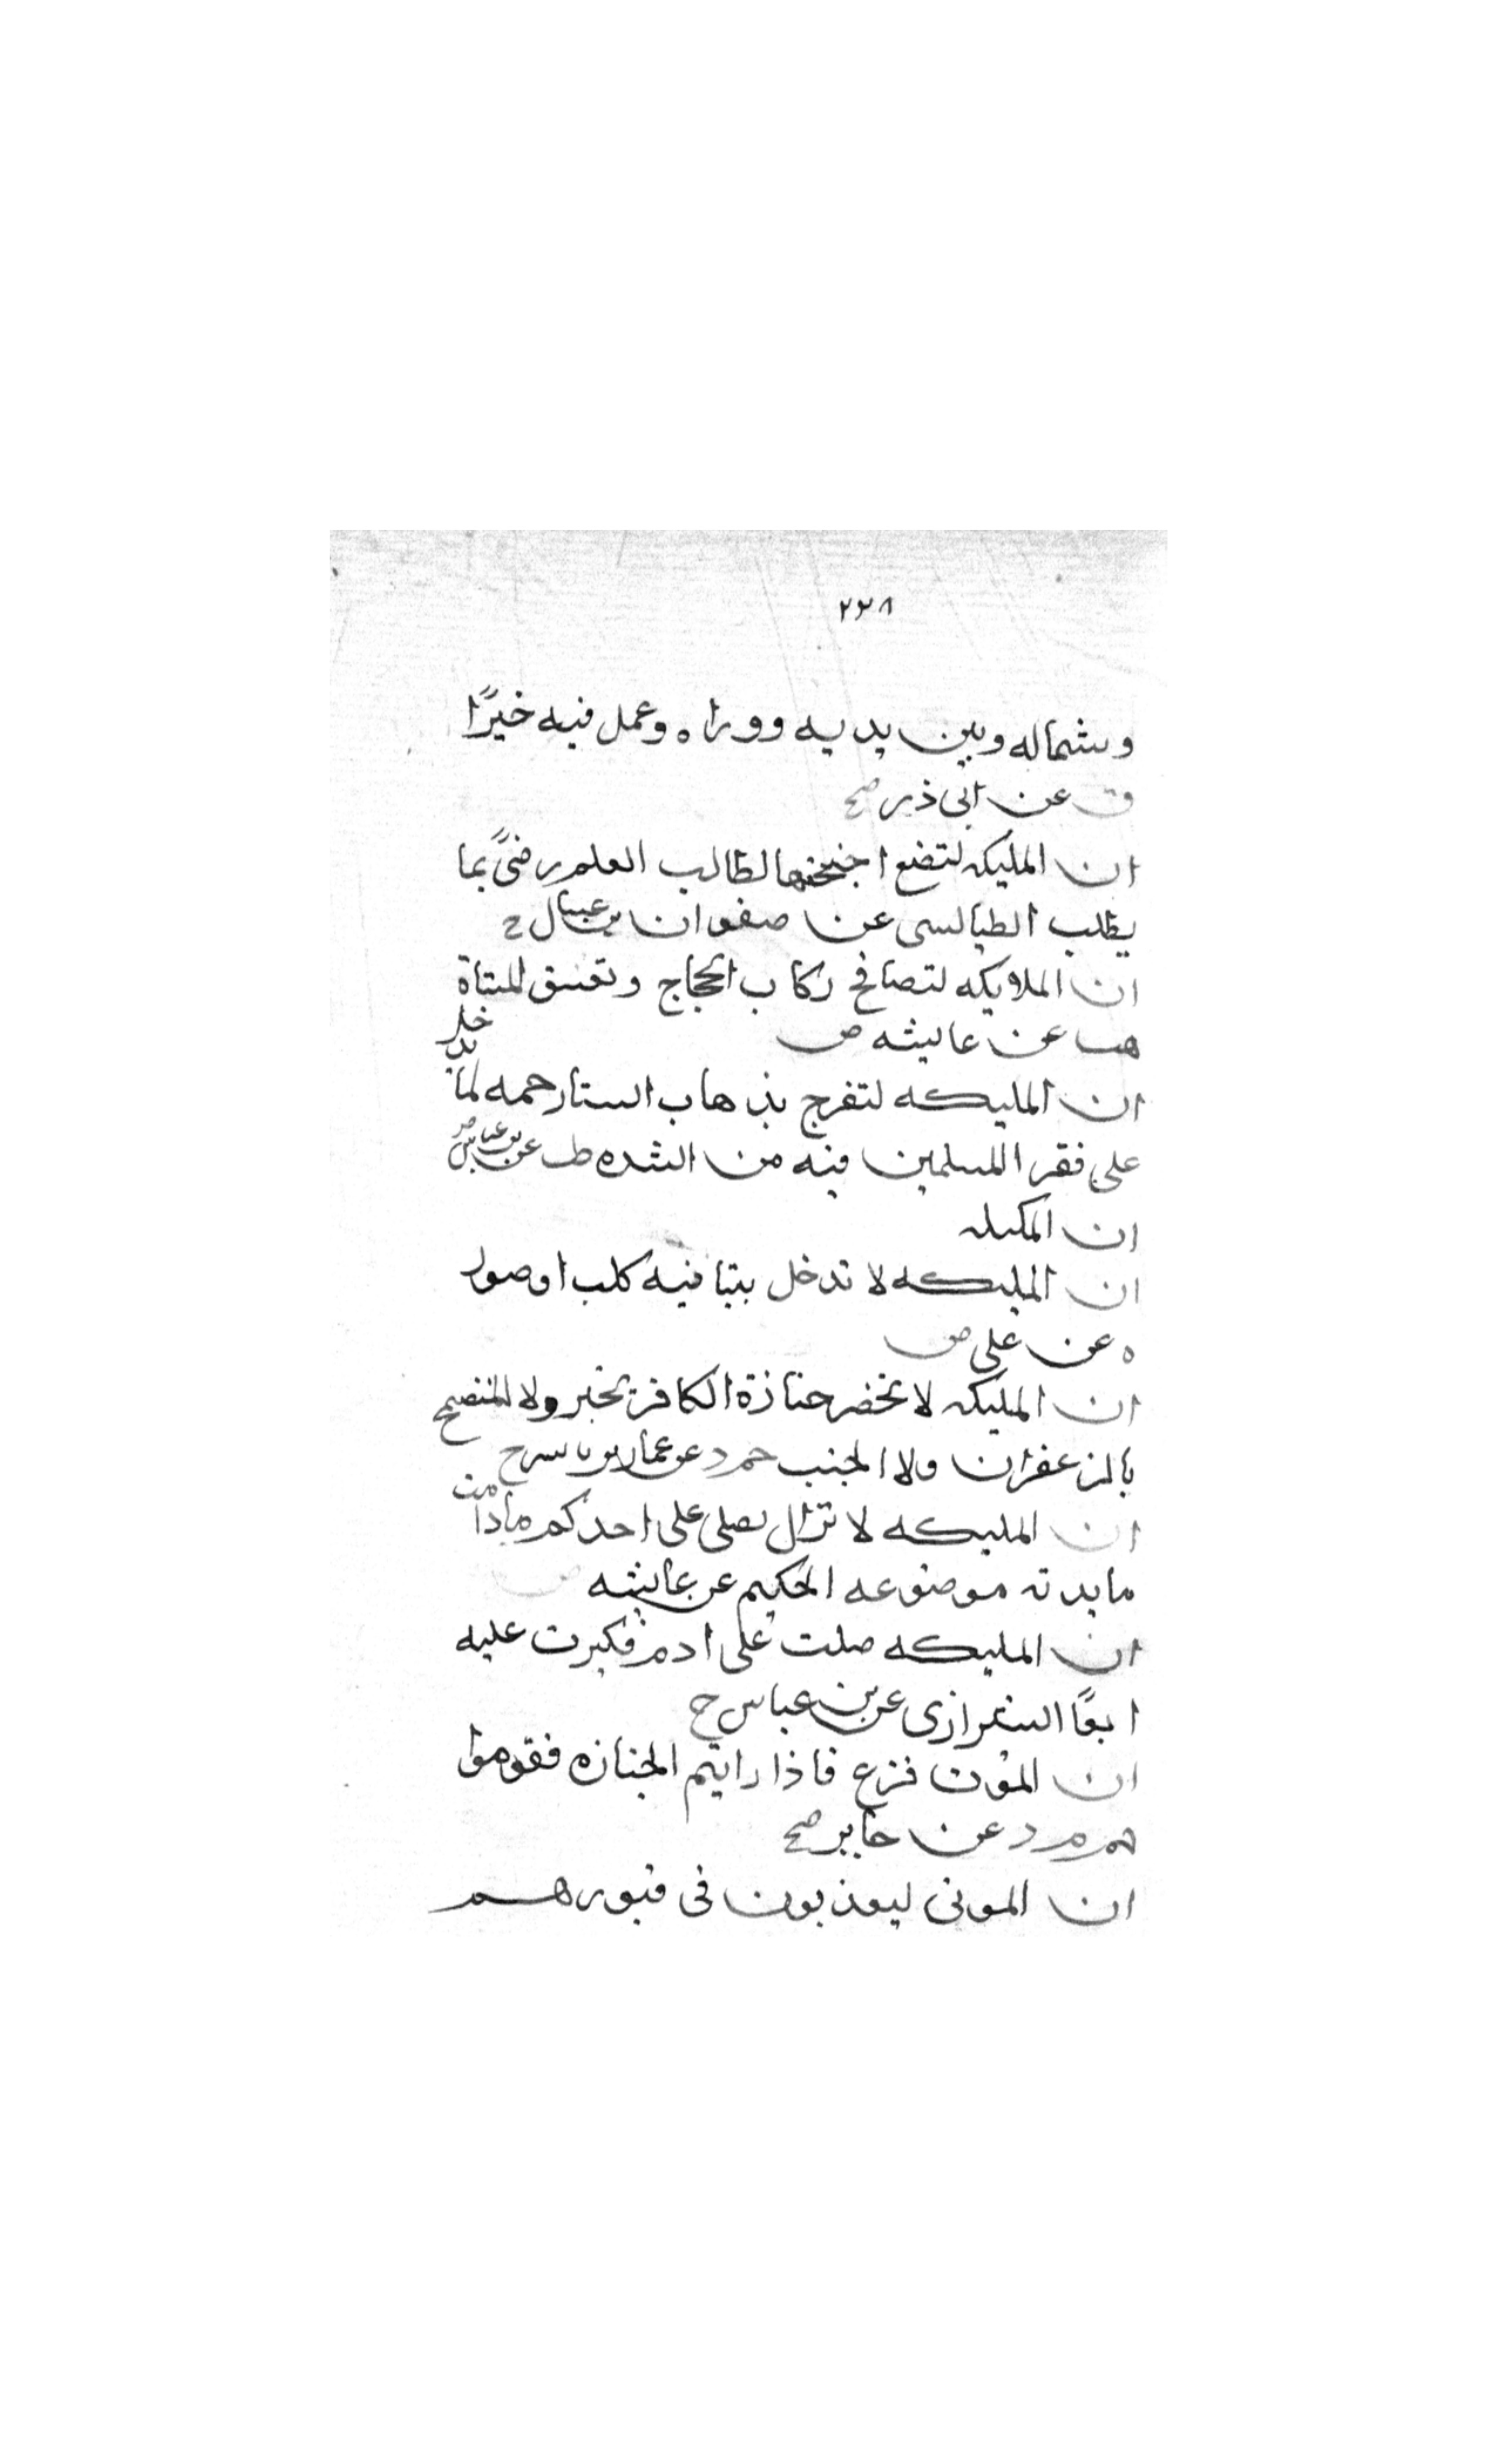 ٢٣٨
وشماله وبين يديه ووراه وعمل فيه خيرًا
ق عن ابى ذر صح
ان المليكه لتضع اجنحتها لطالب العلم رضىً بما
يطلب الطيالسى عن صفوان بن عسال ح
ان الملايكه لتصافح ركاب الحجاج وتعتنق المشاة
هب عن عايشه ض
ان المليكه لتفرح بذهاب الشتا رحمه لما يدخل
على فقرا المسلمين فيه من الشده طب عن بن عباس ض
ان المكيله
ان المليكه لا تدخل بيتا فيه كلب او صوره
ه عن على ض
ان المليكه لا تحضر جنازة الكافر بخير ولا المتضمخ
بالزعفران ولا الجنب حم د عن عمار بن ياسر ح
ان المليكه لا تزال تصلى على احدكم مادامت
مايدته موضوعه الحكيم عن عايشه ض
ان المليكه صلت على ادم فكبرت عليه
اربعًا الشيرازى عن بن عباس ح
ان الموت فزع فاذا رايتم الجنازه فقوموا
حم م د عن جابر صح
ان الموتى ليعذبون فى قبورهم